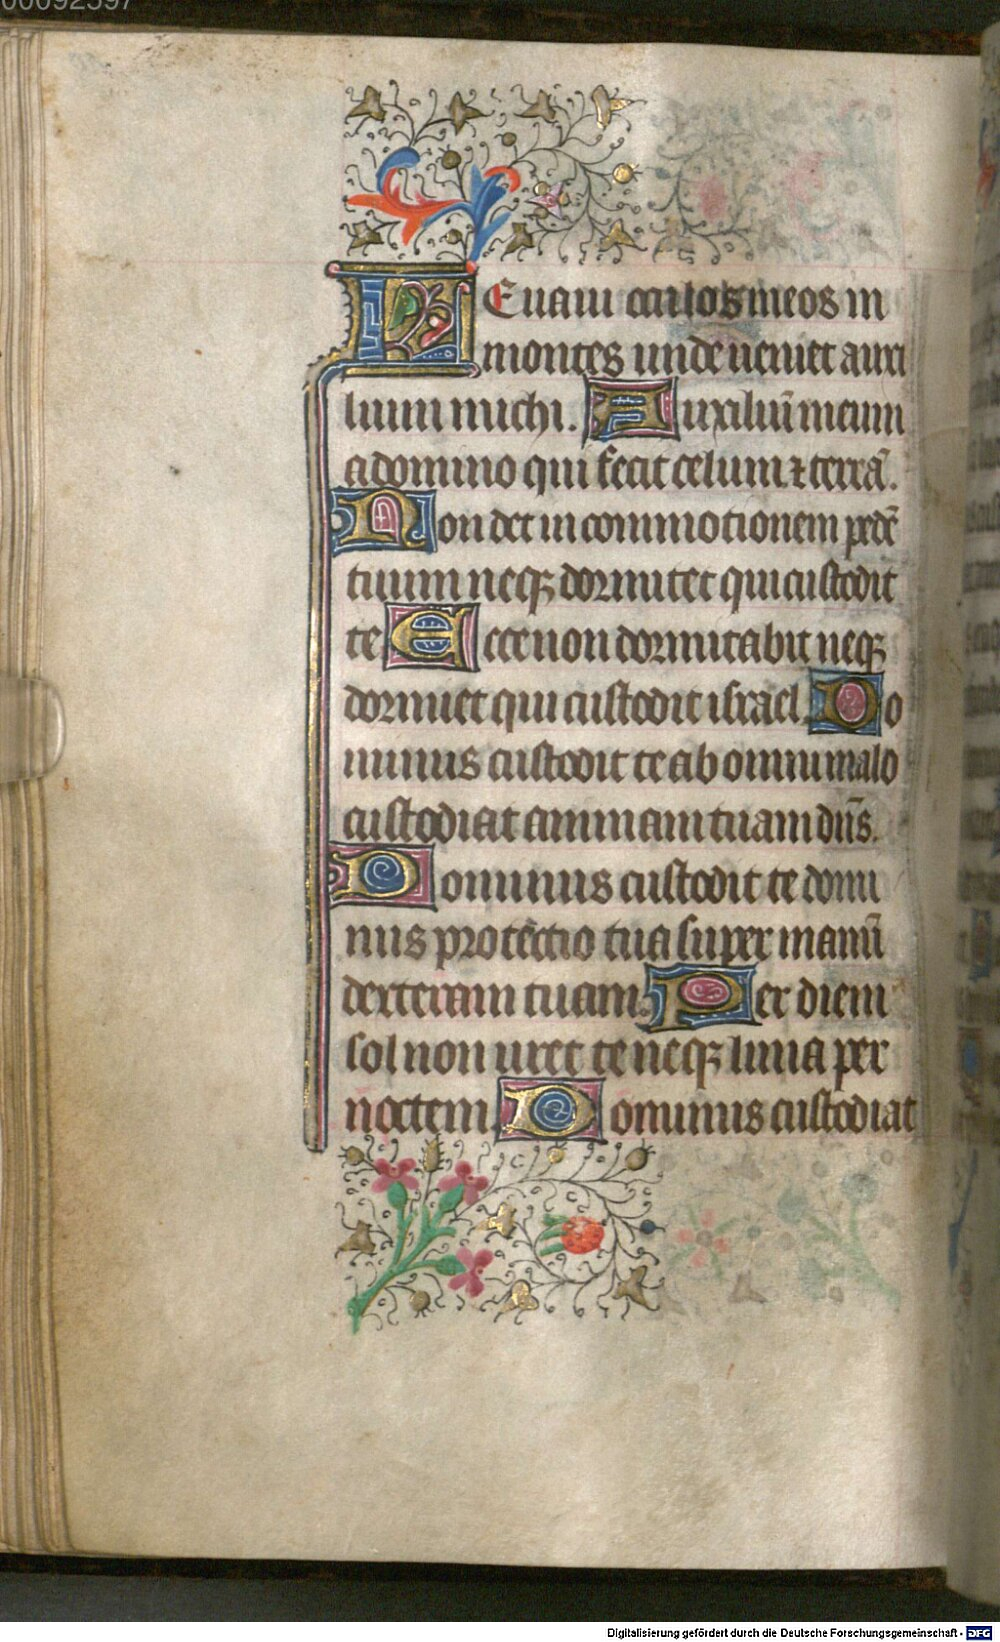 00092397
LEuaui oculos meos in
montes unde ueniet auxi
lium michi. Auxiliū meum
a domino qui fecit celum ⁊ terrā.
Non det in commotionem pedē
tuum neqꝫ dormitet qui custodit
te Ecce non dormitabit neqꝫ
dormiet qui custodit israel. Do
minus custodit te ab omni malo
custodiat animam tuam dn̄s.
Dominus custodit te domi
nus protectio tua super manū
dexteram tuam. Per diem
sol non uret te neqꝫ luna per
noctem. Dominus custodiat
Digitalisierung gefördert durch die Deutsche Forschungsgemeinschaft - DFG